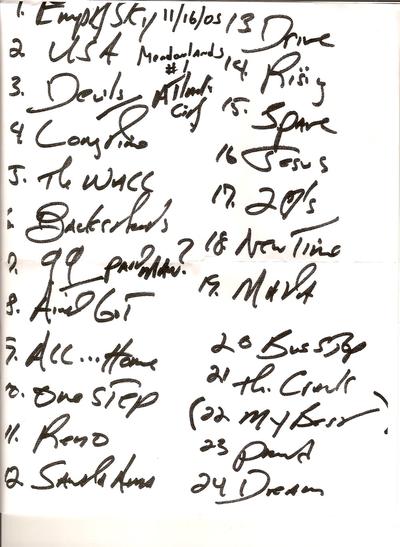 1. Empty Sky 11/16/05
2 USA Meadowlands #1
3. Devils Atlantic City
4 Long Time
5. The Wall
6 Backstreets
7. 99 paid man?
8. Ain't Got
9. All... Home
10. One STEP
11. Reno
12 Santa Ana
13 Drive
14. Rising
15. Spare
16 Jesus
17. 20's
18 New Time
19. MARIA
20 Bus STOP
21 The Crush
(22 My Best)
23 Promised
24 Dream